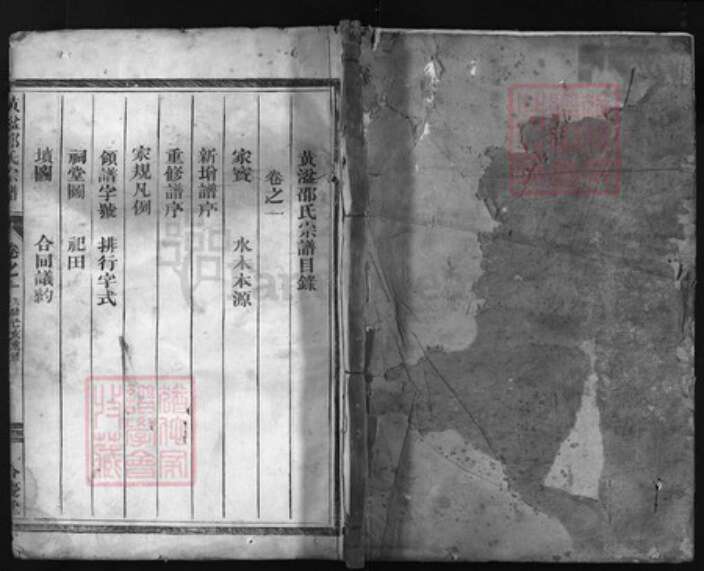 黃溢邵氏宗譜目錄
卷之一
家寶 水木本源
新增譜序
重修譜序
家規凡例
領譜字號 排行字式
祠堂圖 祀田
墳圖 合同議約
黃溢邵氏宗譜 卷之一